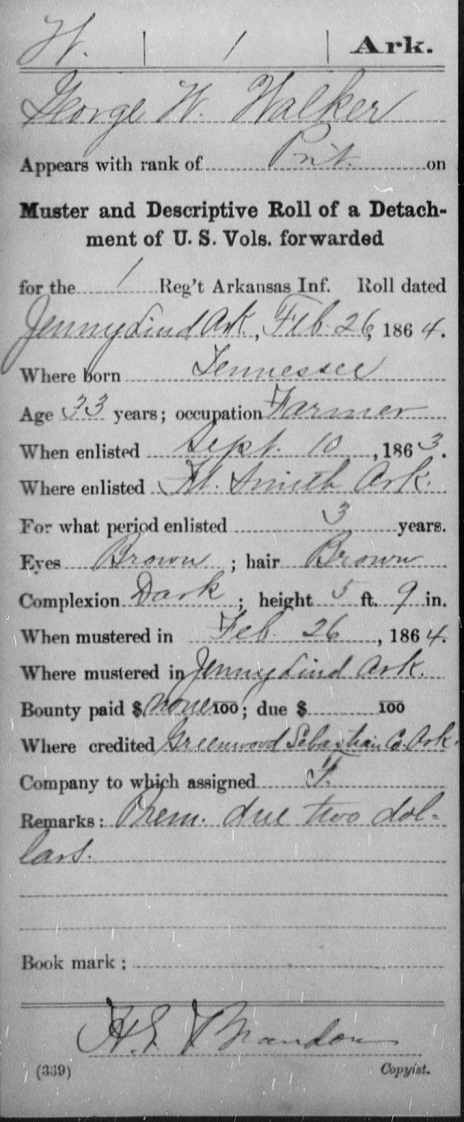 W. | 1 | Ark.
George W. Walker
Appears with rank of Pvt. on
Muster and Descriptive Roll of a Detach-
ment of U. S. Vols. forwarded
for the 1 Reg't Arkansas Inf. Roll dated
Jenny Lind Ark., Feb. 26, 1864.
Where born Tennessee
Age 33 years; occupation Farmer
When enlisted Sept. 10, 1863.
Where enlisted Ft. Smith Ark.
For what period enlisted 3 years.
Eyes Brown; hair Brown
Complexion Dark; height 5 ft. 9 in.
When mustered in Feb 26, 1864.
Where mustered in Jenny Lind Ark.
Bounty paid $ none 100; due $ 100
Where credited Greenwood Sebastian Co. Ark.
Company to which assigned F.
Remarks: Prem. due two dol-
lars.
Book mark:
H. E. Brandon
(339) Copyist.